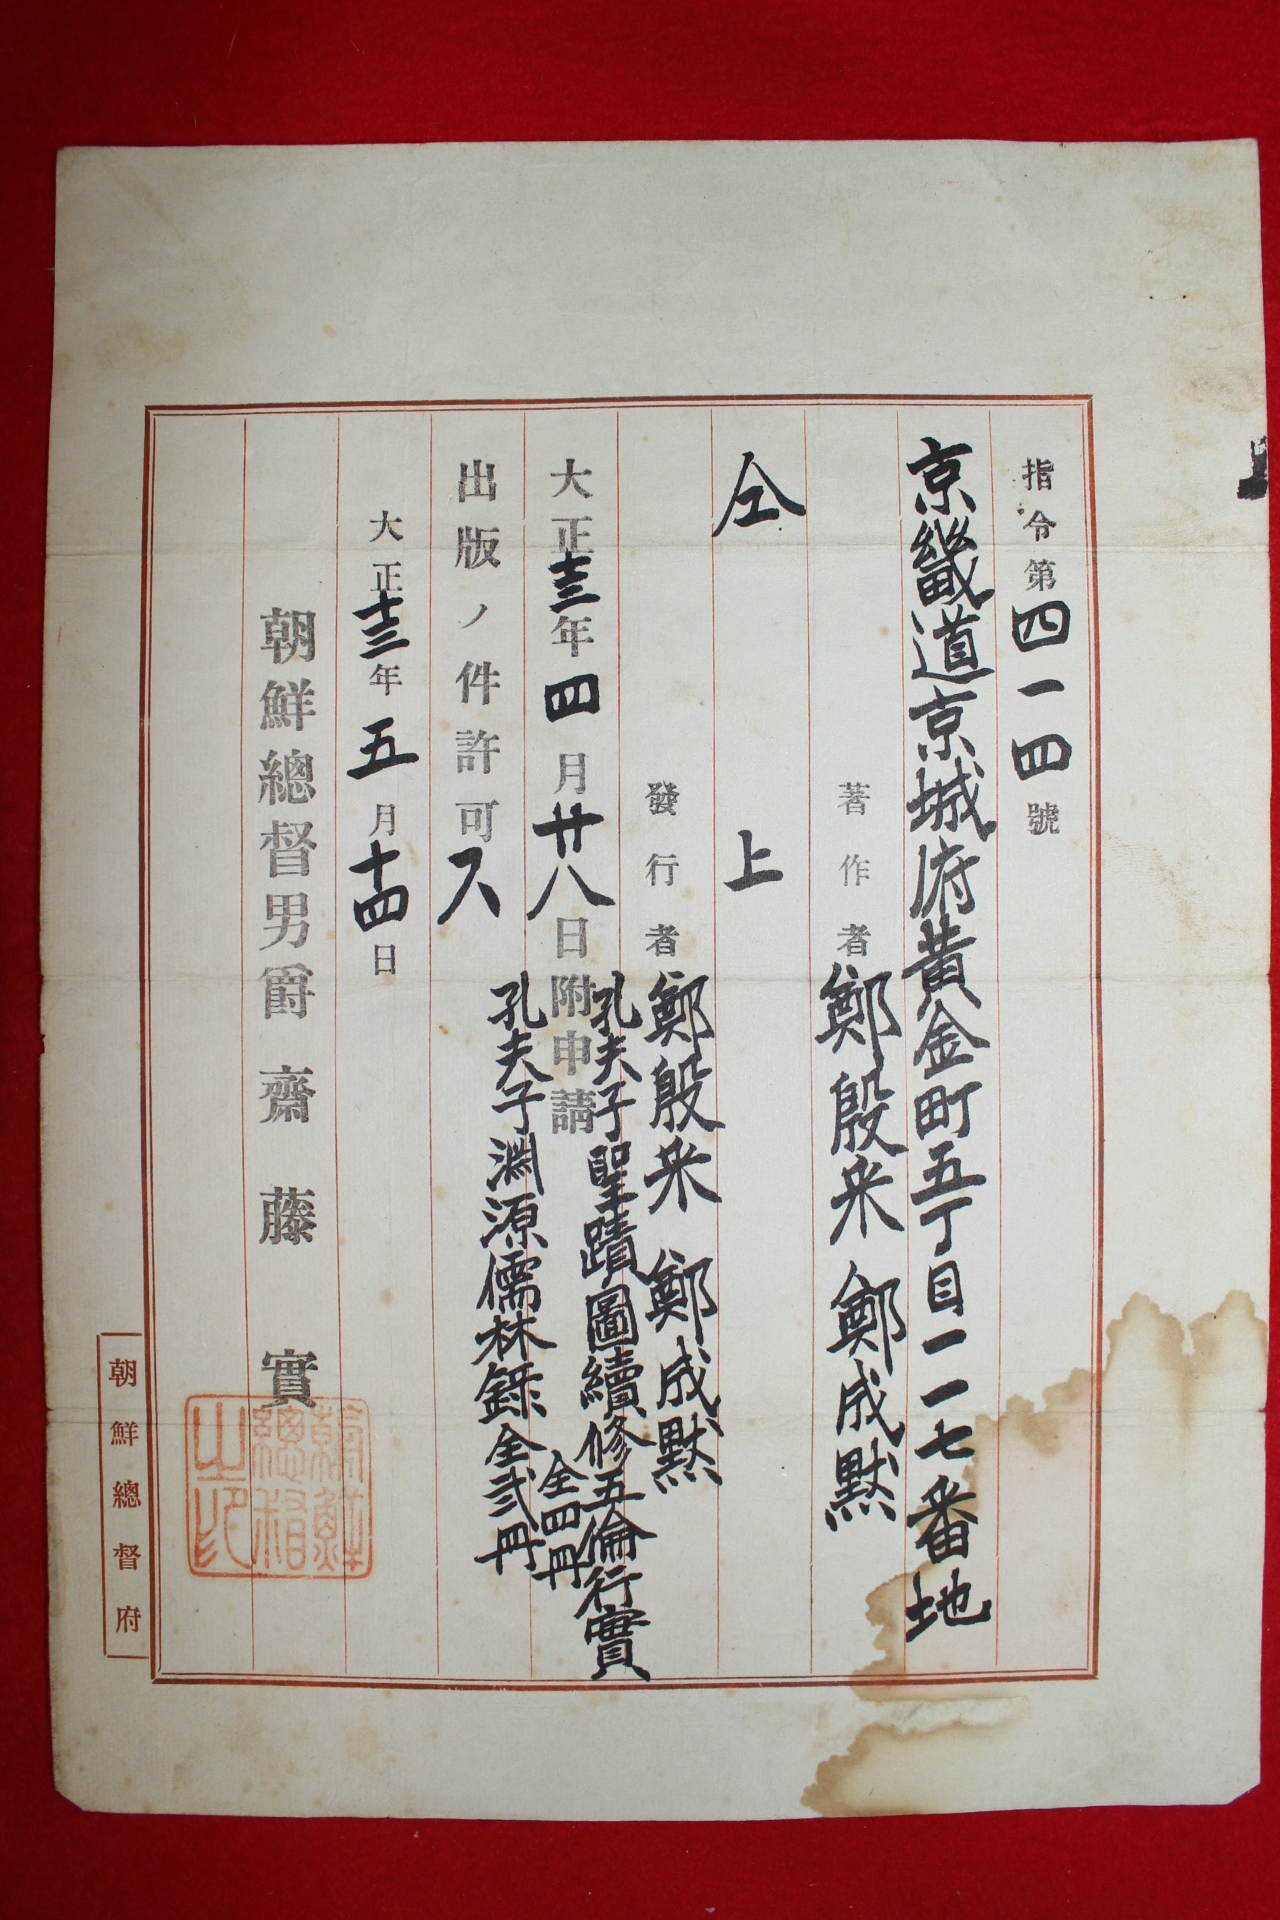 指令第四一四號
京畿道京城府黄金町五丁目一一七番地
著作者 鄭殷采 鄭成默
仝上
發行者 鄭殷采 鄭成默
大正十三年四月廿八日附申請
孔夫子聖蹟圖續修五倫行實
全四冊
孔夫子淵源儒林錄全貳冊
出版ノ件許可ス
大正十三年五月十四日
朝鮮總督男爵 齋藤實
朝鮮總督之印
朝鮮總督府